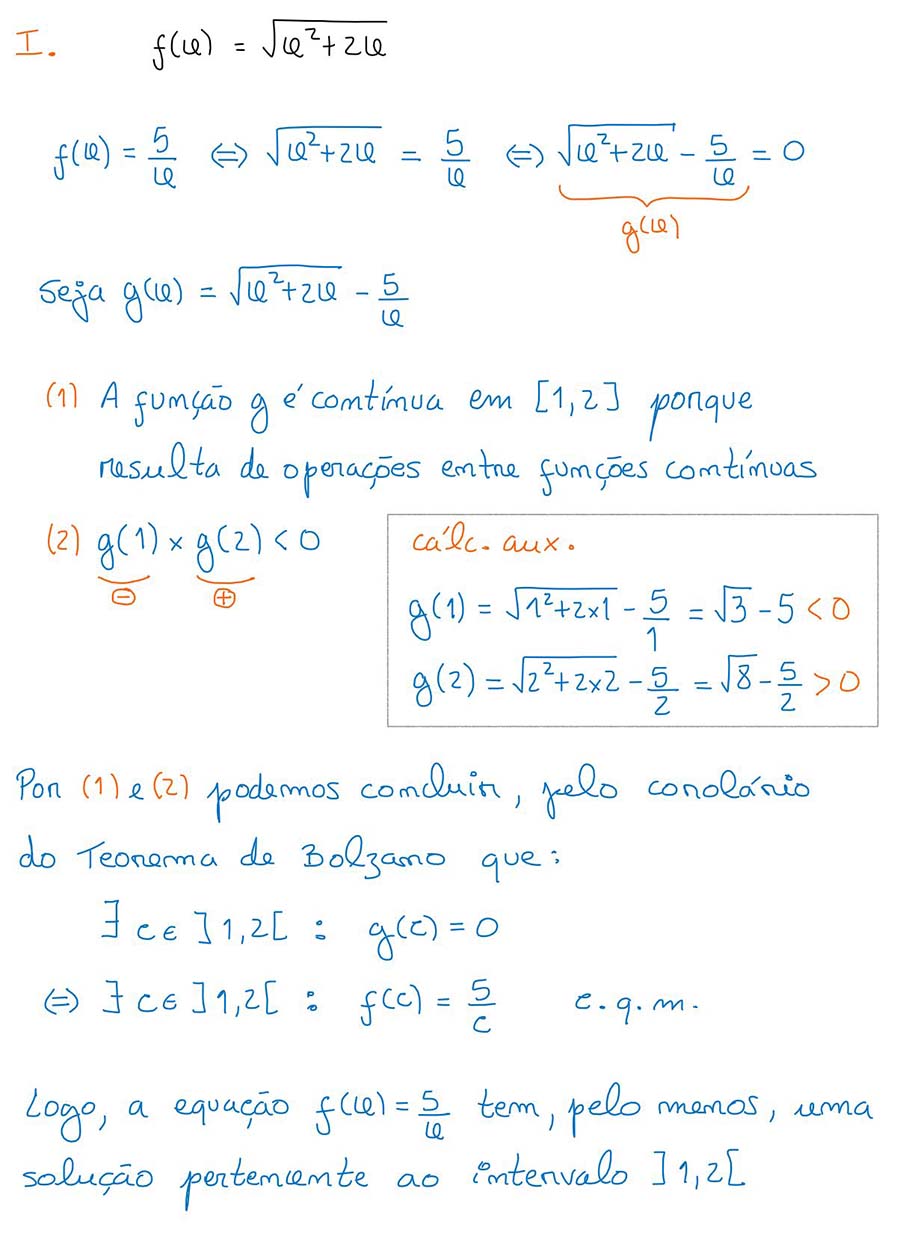 I. f(x) = √(x²+2x)
f(x) = 5/x ⇔ √(x²+2x) = 5/x ⇔ √(x²+2x) - 5/x = 0
g(x)
Seja g(x) = √(x²+2x) - 5/x
(1) A função g é contínua em [1,2] porque
resulta de operações entre funções contínuas
(2) g(1) × g(2) < 0
⊖ ⊕
cálc. aux.
g(1) = √(1²+2×1) - 5/1 = √3 - 5 < 0
g(2) = √(2²+2×2) - 5/2 = √8 - 5/2 > 0
Por (1) e (2) podemos concluir, pelo corolário
do Teorema de Bolzano que:
∃ c ∈ ]1,2[ : g(c) = 0
⇔ ∃ c ∈ ]1,2[ : f(c) = 5/c c.q.m.
Logo, a equação f(x) = 5/x tem, pelo menos, uma
solução pertencente ao intervalo ]1,2[